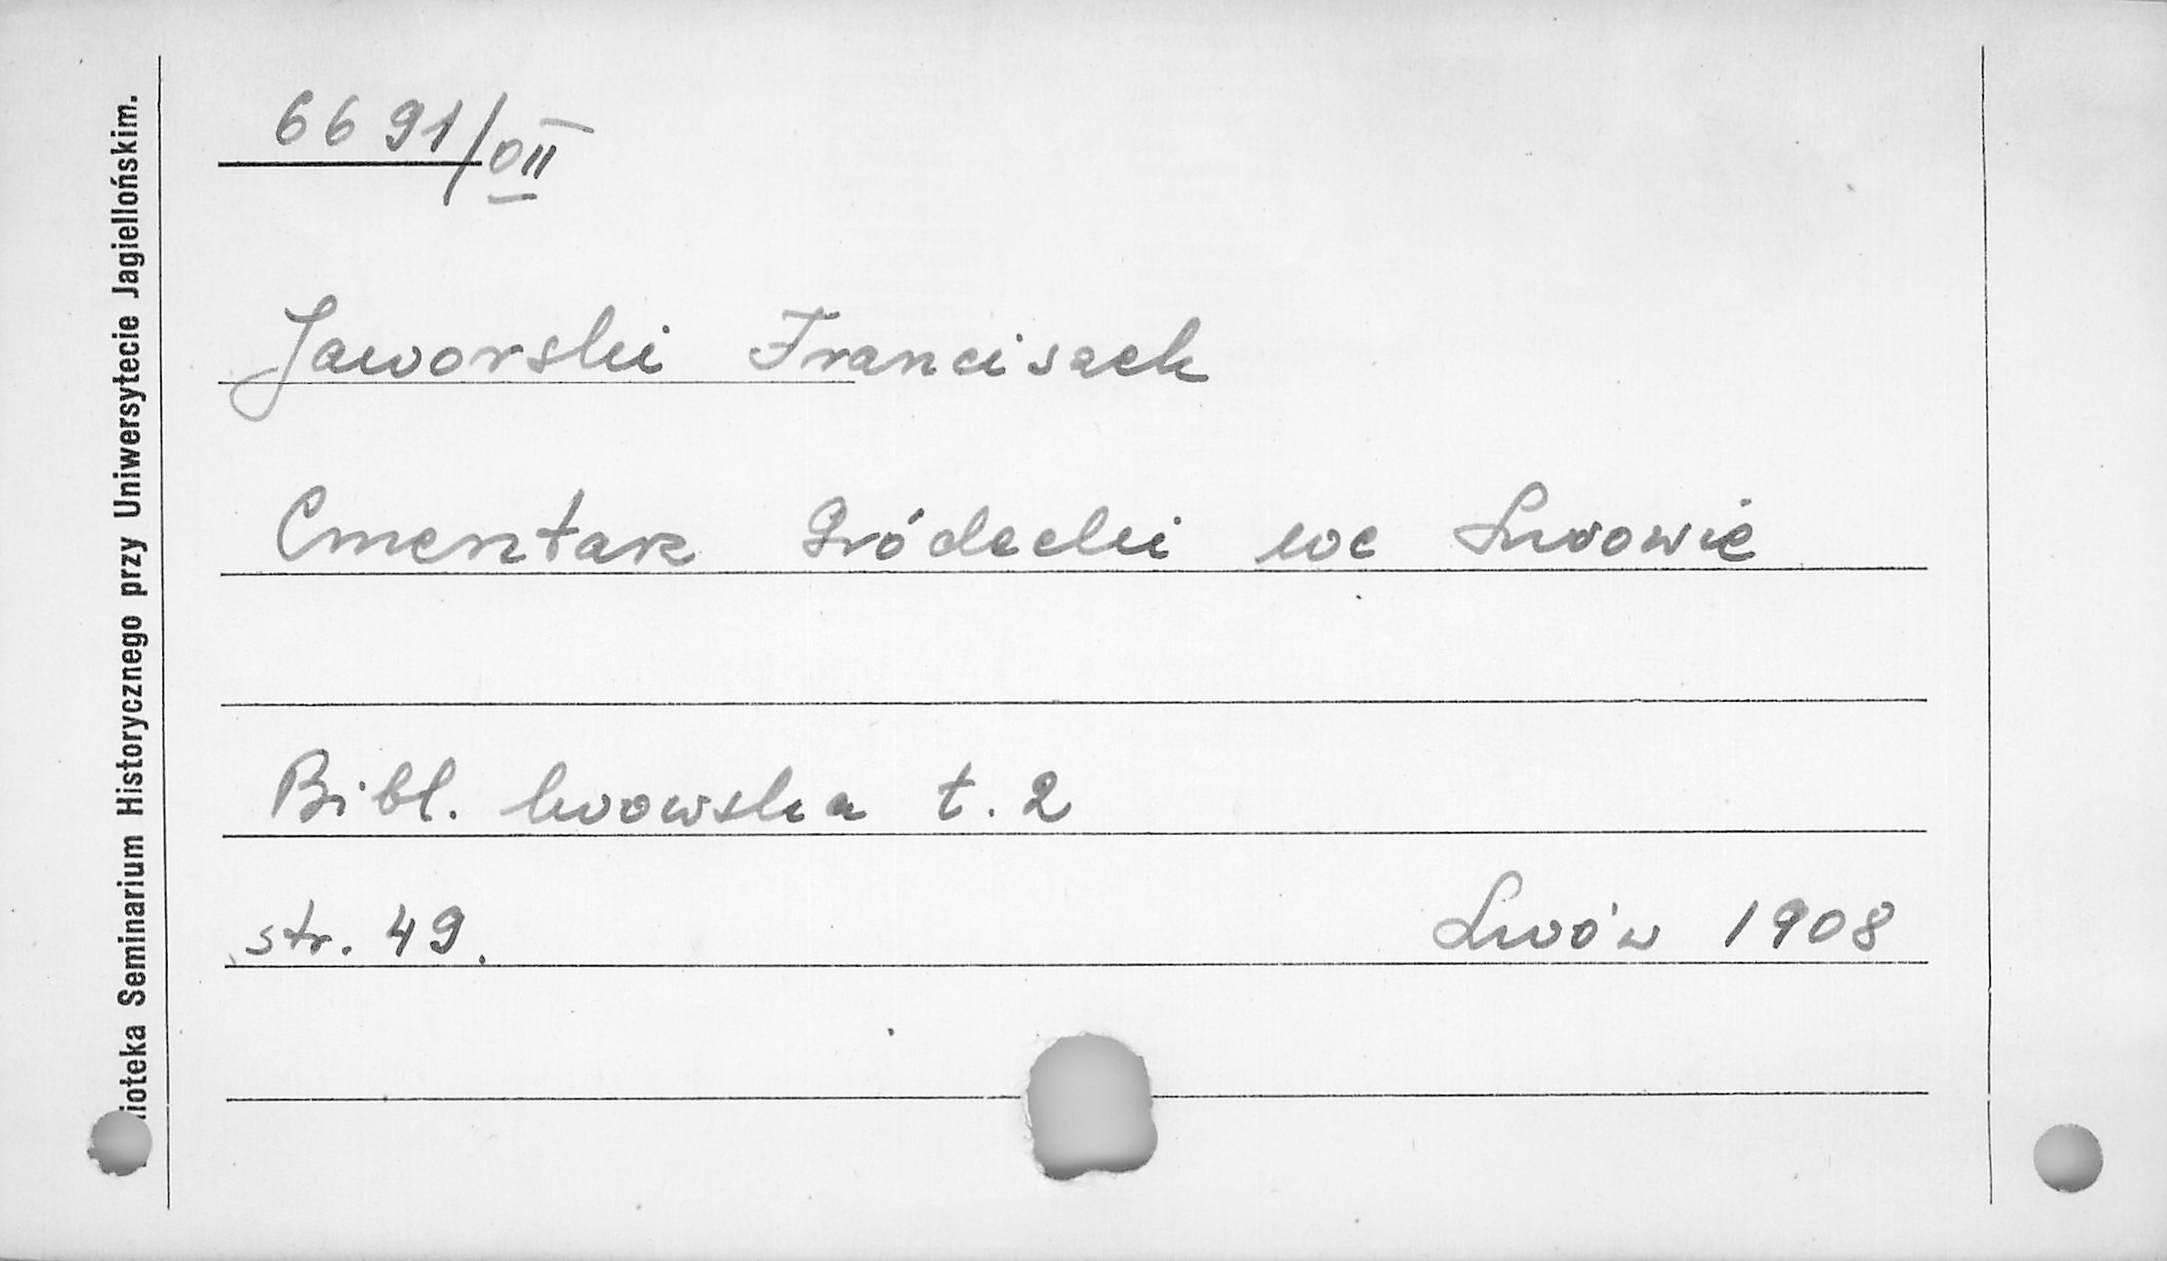 6691/OII
Jaworski Franciszek
Cmentarz Gródecki we Lwowie
Bibl. lwowska t. 2
str. 49.
Lwów 1908
lioteka Seminarium Historycznego przy Uniwersytecie Jagiellońskim.